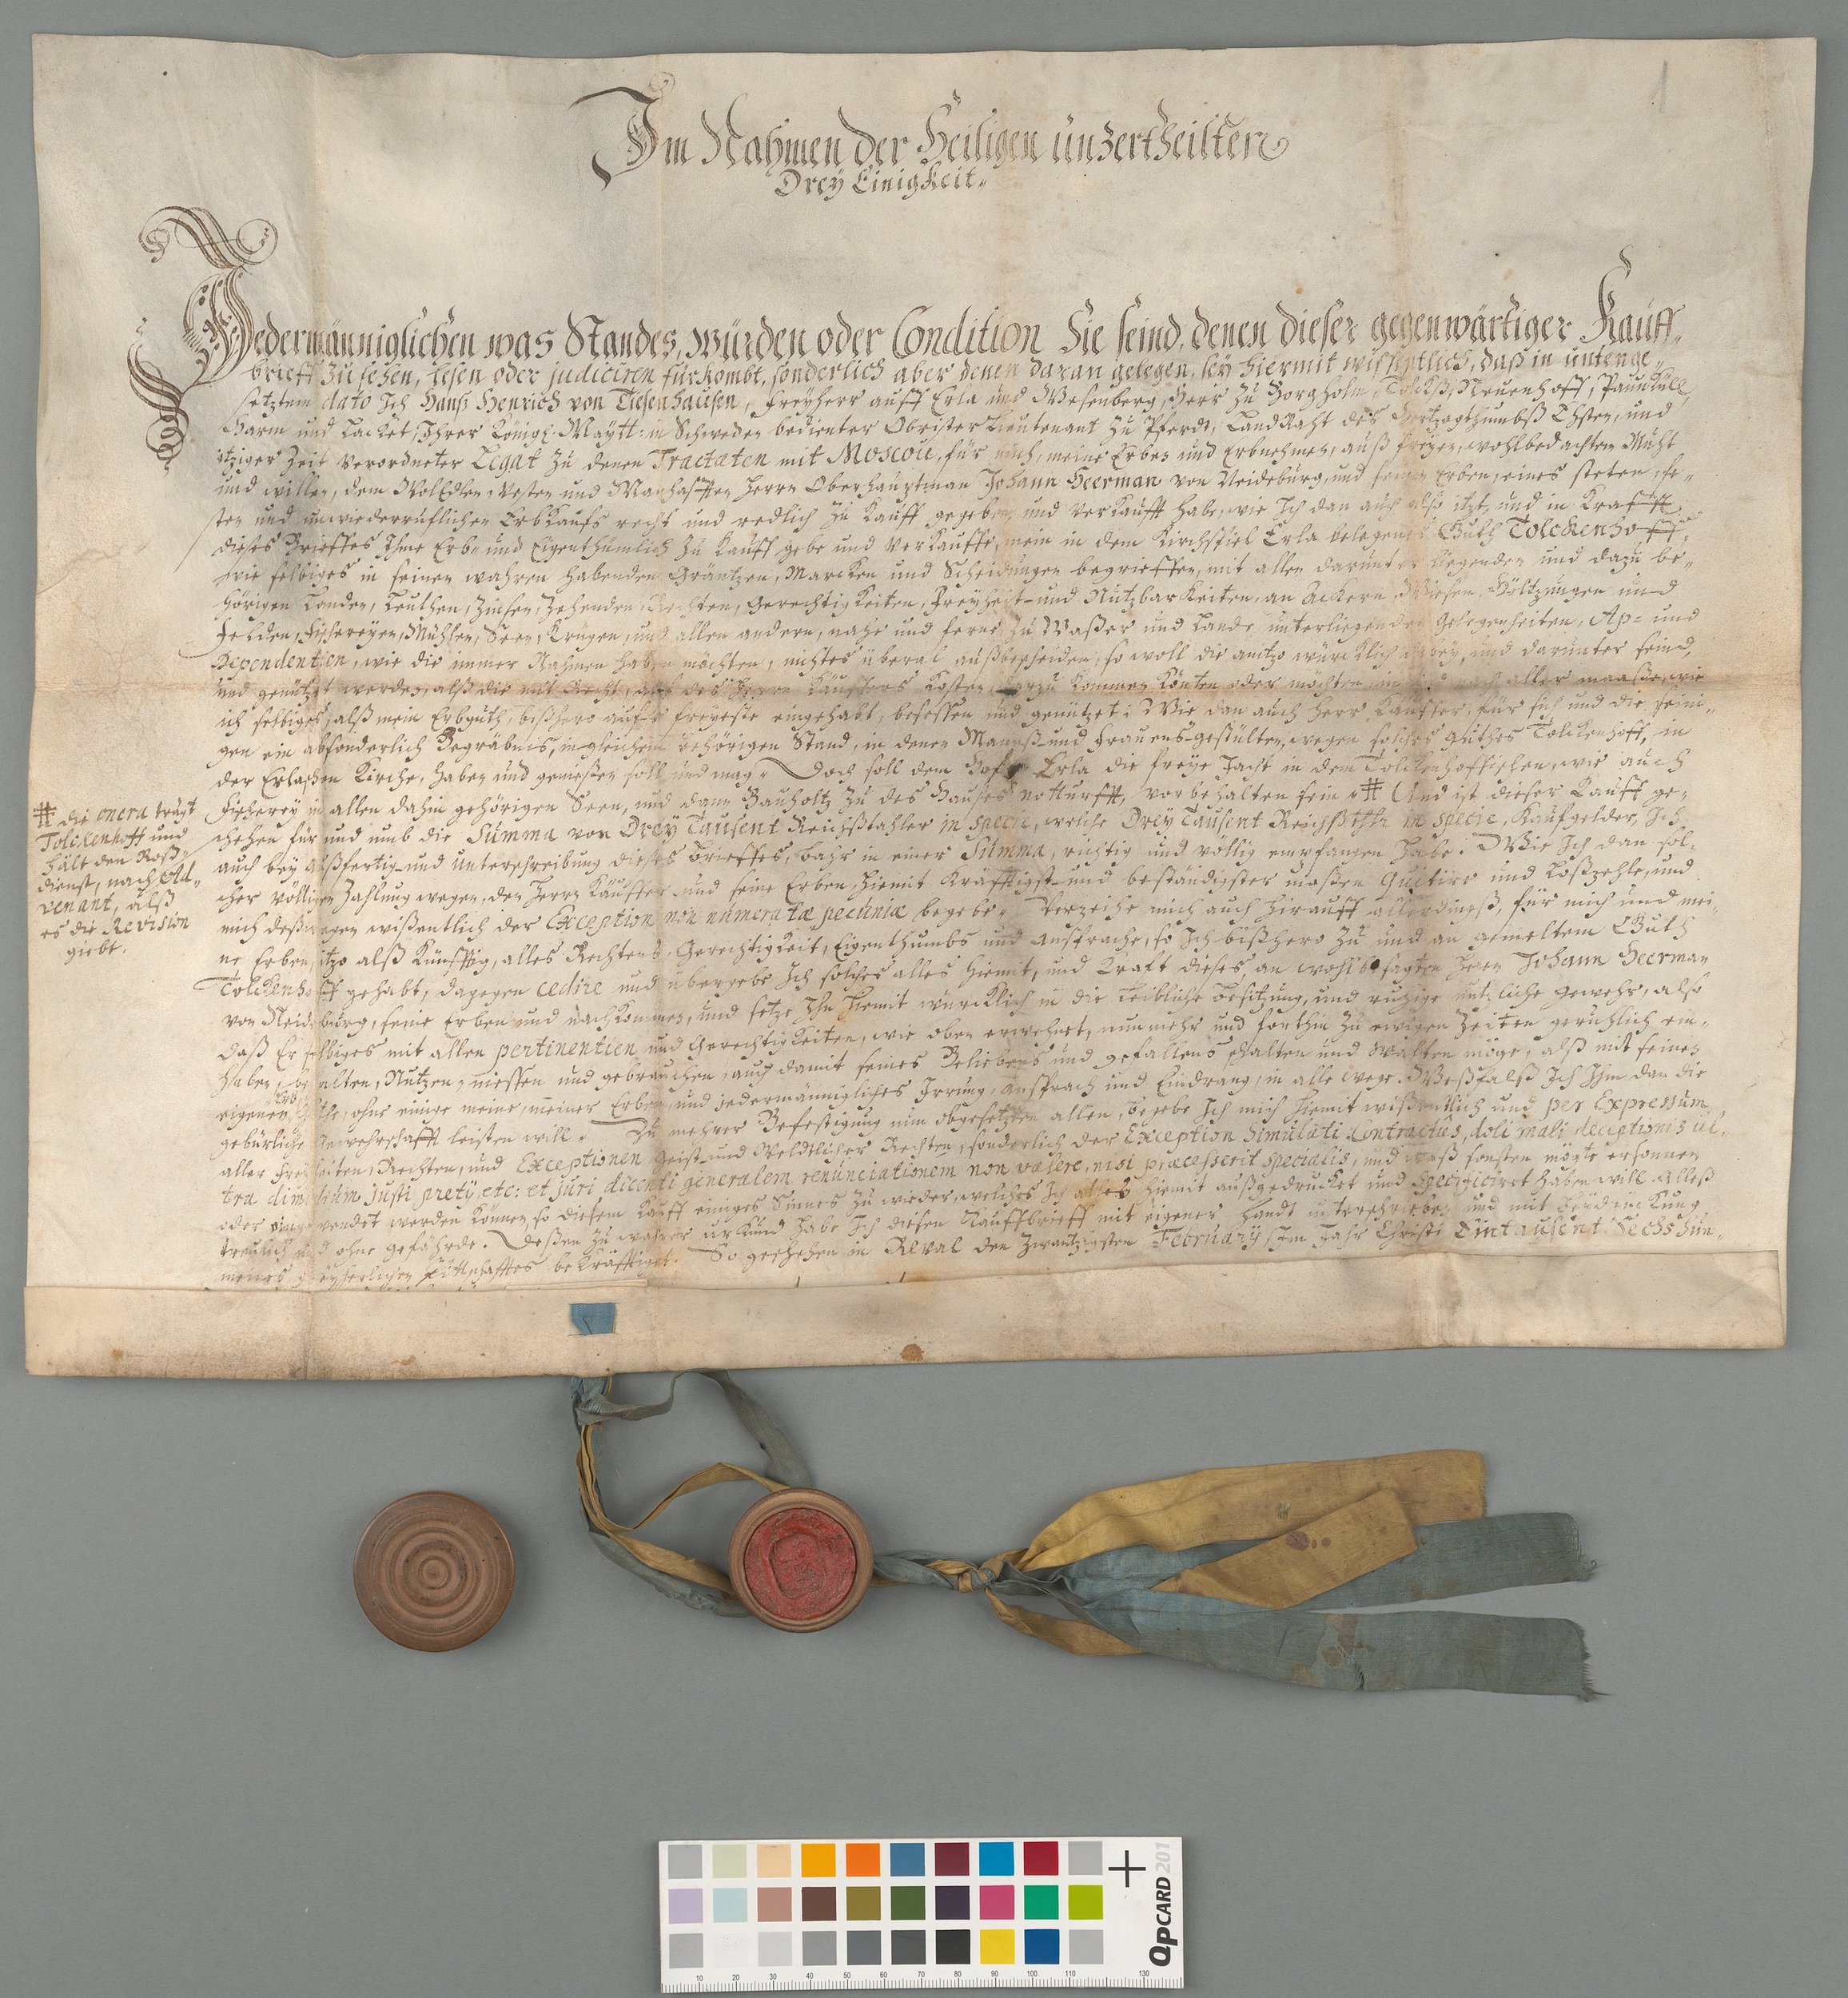 Im Nahmen der Heiligen unzertheilten
Drey Einigkeit.
Jedermänniglichen was Standes, würden oder Condition Sie seind, denen dieser gegenwärtiger Kauff-
brieff zu sehen, lesen oder judiciren fürkombt, sonderlich aber denen daran gelegen, sey hiermit wißentlich, daß in untenge-
setztem dato Ich Hanß Henrich von Tiesenhausen, Freyherr auff Erla und Wesenberg, Herr zu Borgholm, Tolckß, Neuenhoff, Pauküll,
Harm und Tacket, Ihrer Königl. Maytt: in Schweden bedienter Obrister Lieutenant zu Pferdt, LandRaht des Hertzogthumbß Ehsten, und
itziger Zeit verordneter Legat zu denen Tractaten mit Moscou, für mich, meine Erben und Erbnehmen, auß freyen, wohlbedachtem Muht
und willen, dem WolEdlen, Vesten und Manhafften Herrn Oberhauptman Johann Heerman von Neideburg, und seinen Erben, eines steten, fe-
sten und unwiederruflichen ErbKaufs recht und redlich zu Kauff gegeben und verkaufft habe, wie Ich dan auch also itzt und in Krafft
dieses Brieffes Ihme Erb- und Eigenthümlich zu Kauff gebe und verkauffe, mein in dem Kirchspiel Erla belegenes Guth Tolckenhoff,
wie selbiges in seinen wahren habenden Gräntzen, Marcken und Scheidungen begrieffen, mit allen darunter liegenden und dazu be-
hörigen Landen, Leuthen, Zinsen, Zehenden, Rechten, Gerechtigkeiten, Freyheit- und Nutzbarkeiten, an Ackern, Wiesen, Höltzungen und
Felden, Fischereyen, Mühlen, Seen, Krügen, und allen andern, nahe und ferne zu Waßer und Lande unterliegenden Gelegenheiten, Ap- und
Dependentien, wie die immer Nahmen haben möchten, nichtes überal außbescheiden, so woll die anitzo würcklich dabey, und darunter seind,
und genützet werden, alß die mit Recht, auf des Herrn Käuffers Kosten, darzu kommen könten oder möchten aller maaße, wie
ich selbiges, alß mein Erbguth, bißhero aufs freyeste eingehabt, besessen und genützet: Wie dan auch Herr Käuffer, für sich und die seini-
gen ein absonderlich Begräbnis, in gleichem behörigen Stand, in denen Manneß- und Frauens-gestülten, wegen solches Guthes Tolckenhoff, in
der Erlaschen Kirche, haben und genießen soll und mag. Doch soll dem Hofe Erla die freye Jacht in dem Tolckenhoffischen, wie auch
Fischerey in allen dahin gehörigen Seen, und dann Bauholtz zu des Hauses notturfft, vorbehalten sein # Und ist dieser Kauff ge-
schehen für und umb die Summa von Drey Tausent Reichßtahler in specie, welche Drey Tausent Reichßthlr in specie, Kaufgelder, Ich
auch bey außfertig- und unterschreibung dieses Brieffes, bahr in einer Summa, richtig und völlig empfangen habe. Wie Ich dan sol-
cher völligen Zahlung wegen, den Herrn Käuffer und seine Erben, hiemit kräfftigst- und beständigster maßen Quitire und Loßzehle, und
mich deßwegen wißentlich der Exception non numeratæ pecuniæ begebe. Verzeihe mich auch hirauff allerdingß, für mich und mei-
ne Erben, itzo alß künfftig, alles Rechtens, Gerechtigkeit, Eigenthumbs und Ansprache, so Ich bißhero zu und an gemeltem Guth
Tolckenhoff gehabt, dagegen cedire und übergebe Ich solches alles hiemit, und Kraft dieses, an wohlbesagten Herrn Johann Heerman
von Neideburg, seine Erben und nachkommen, und setze Ihn hiemit würcklich in die Leibliche Besitzung, und ruhige nutzliche gewehr, also
daß Er selbiges mit allen pertinentien und Gerechtigkeiten, wie oben erwehnet, nunmehr und forthin zu ewigen Zeiten geruhlich ein-
haben, behalten, Nutzen, niessen und gebrauchen, auch damit seines Beliebens und gefallens schalten und walten möge, alß mit seinem
eigenen Erbguthe, ohne einige meine, meiner Erben und jedermänniglichs Irrung, Ansprach und Eindrang, in alle wege. Weßfalß Ich Ihm dan die
gebürliche Gewehrschafft leisten will. Zu mehrer Befestigung nun obgesetzten allen, begebe Ich mich hiemit wißentlich und per Expressum
aller Freyheiten, Rechten, und Exceptionen Geist- und Weldtlicher Rechten, sonderlich der Exception Simulati Contractus, doli mali deceptionis ul-
tra dimidium justi pretÿ, etc: et juri dicenti generalem renunciationem non valere, nisi præcesserit specialis, und waß sonsten mögte ersonnen
oder eingewendet werden können, so diesem Kauff einiges Sinnes zu wieder, welches Ich alles hiemit außgedrucket und specificiret haben will. Alleß
treulich und ohne gefährde. Deßen zu wahrer urkund habe Ich diesen Kauffbrieff mit eigener Handt unterschrieben und mit beydrückung
meines Freyherlichen Pittschafftes bekräfftiget. So geschehen in Reval den Zwantzigsten February, Im Jahr Christi Eintausent Sechs hun-
# die onera trägt
Tolckenhoff und
hält den Roß-
dienst, nach Ad-
venant, alß
es die Revision
giebt.
1
QPCARD 201
10 20 30 40 50 60 70 80 90 100 110 130